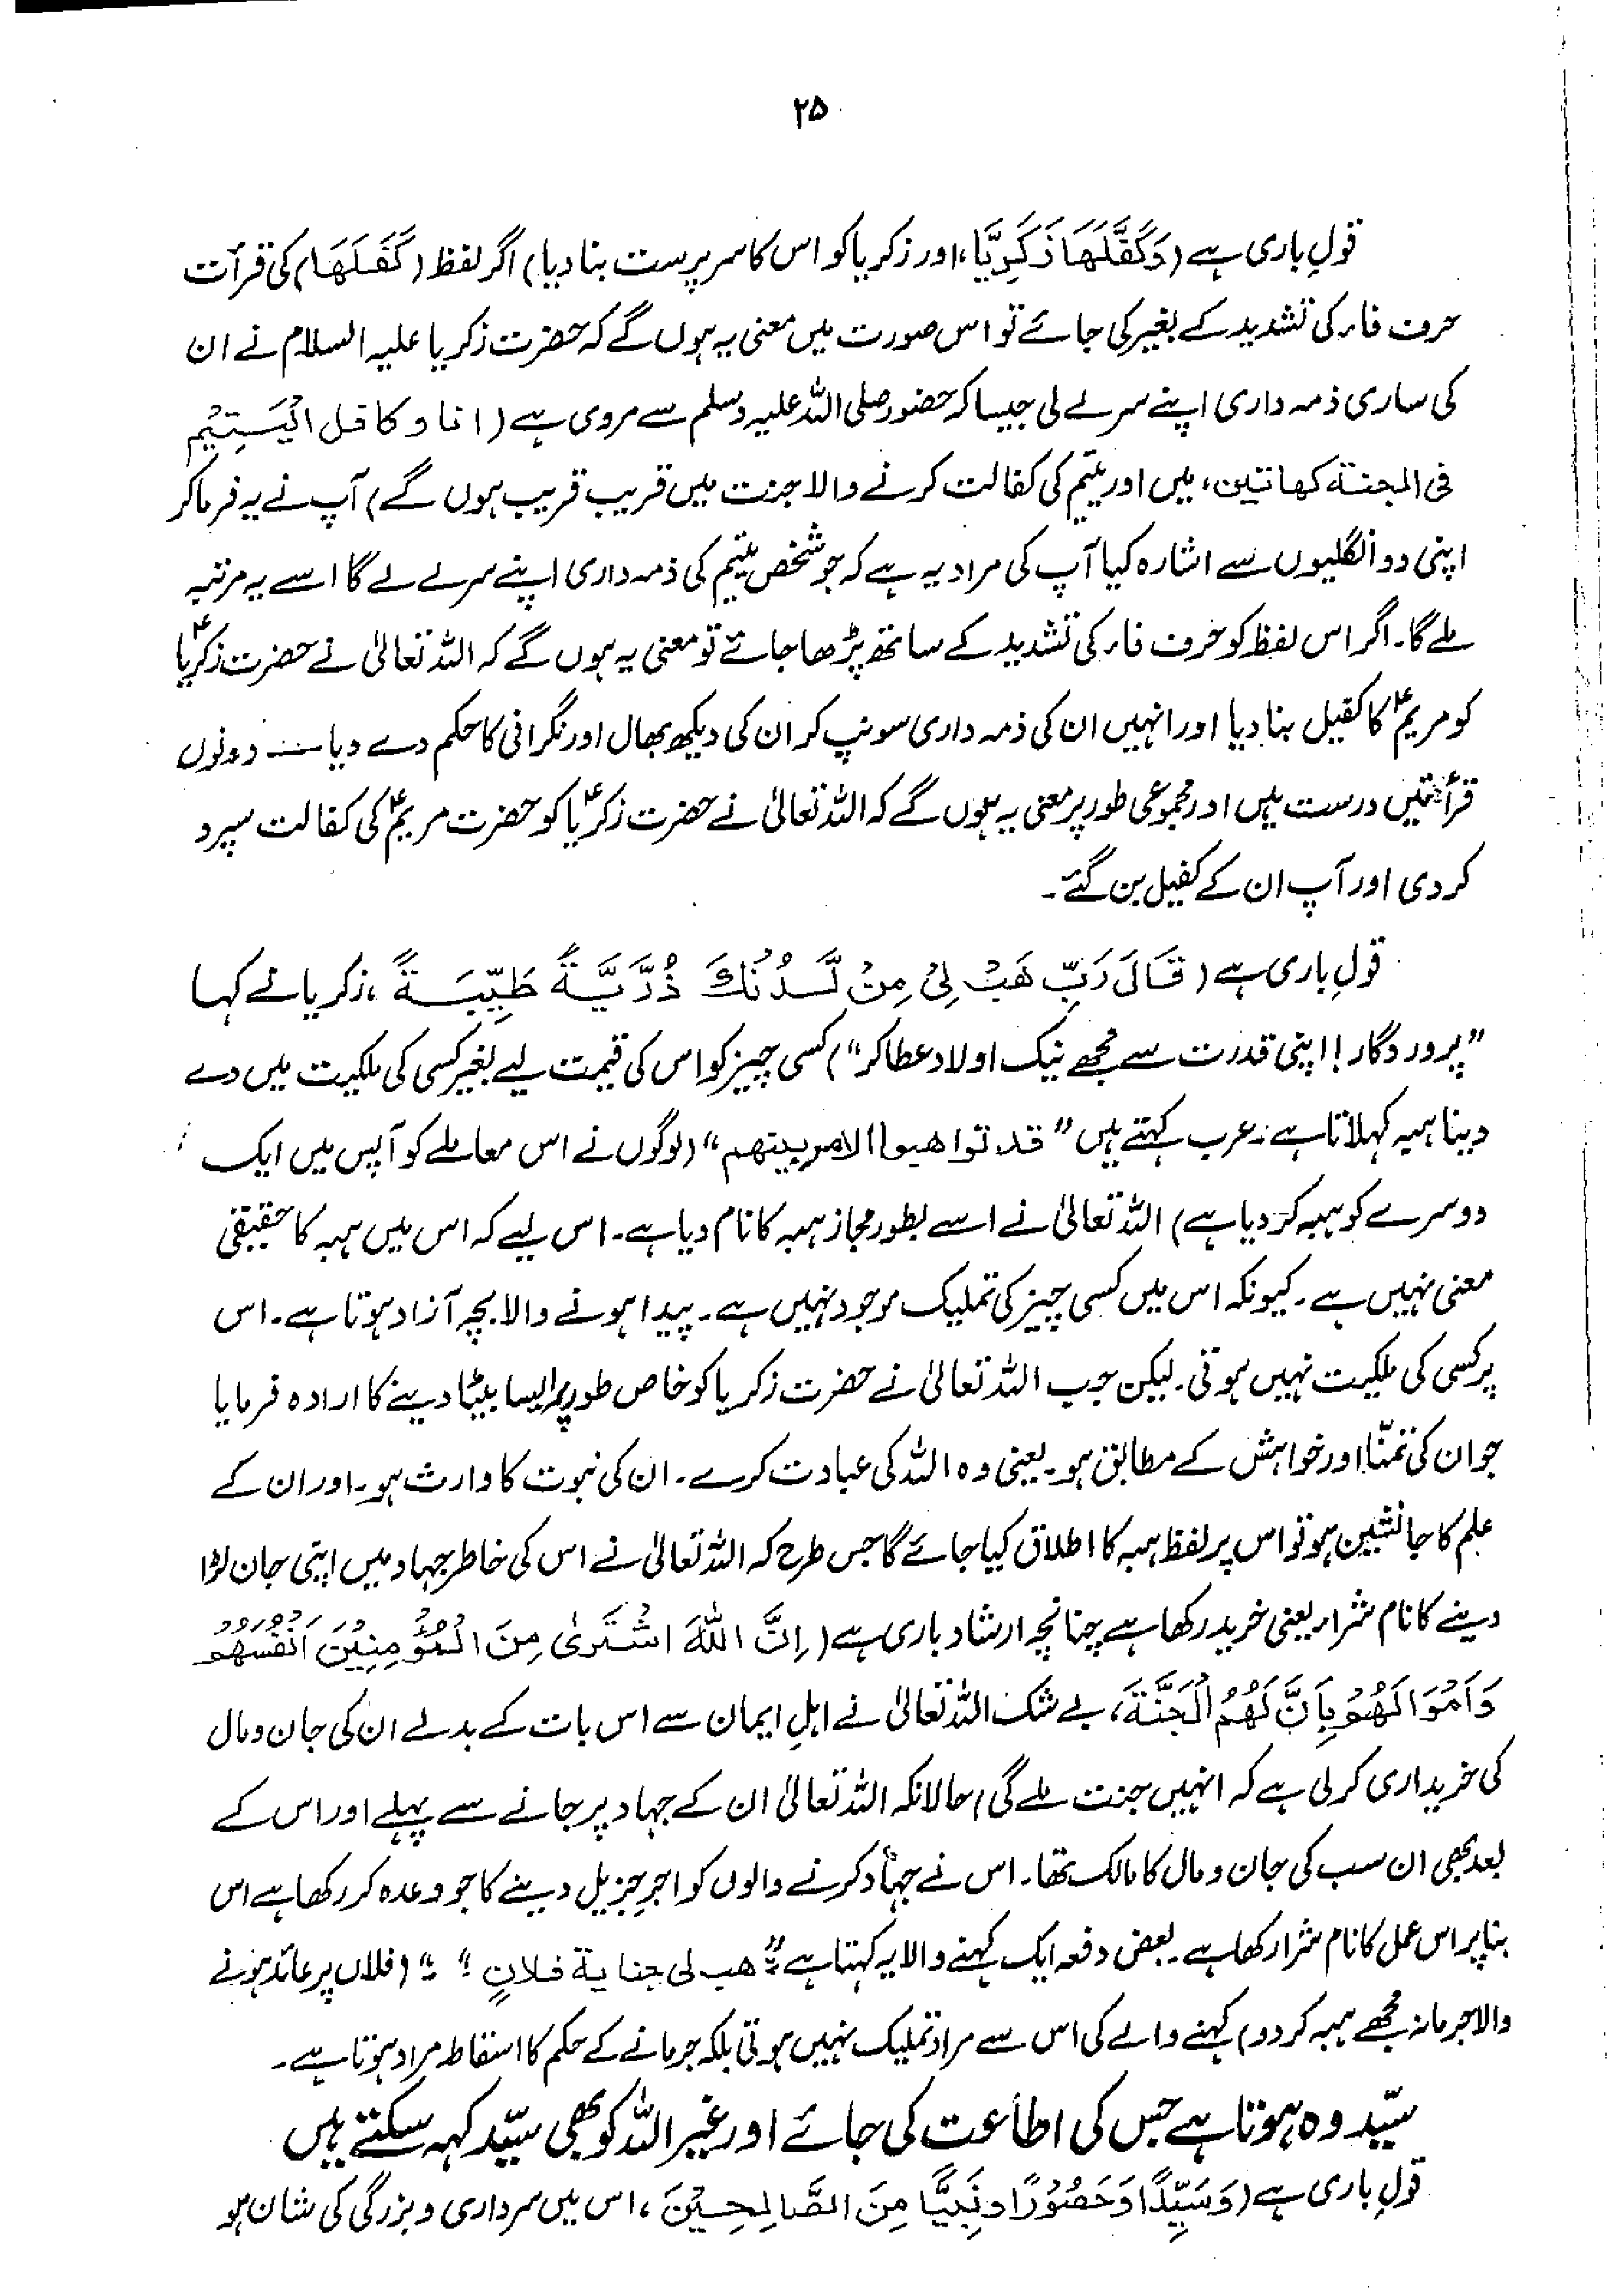 ۲۵
قولِ باری ہے (وَكَفَّلَهَا زَكَرِيَّا، اور زکریا کو اس کا سرپرست بنا دیا) اگر لفظ (كَفَلَهَا) کی قرأت
حرف فاء کی تشدید کے بغیر کی جائے تو اس صورت میں معنی یہ ہوں گے کہ حضرت زکریا علیہ السلام نے ان
کی ساری ذمہ داری اپنے سر لے لی جیسا کہ حضور صلی اللہ علیہ وسلم سے مروی ہے (انا و کافل الْيَتِيْم
فی الجنۃ کھاتین، میں اور یتیم کی کفالت کرنے والا جنت میں قریب قریب ہوں گے) آپ نے یہ فرما کر
اپنی دو انگلیوں سے اشارہ کیا آپ کی مراد یہ ہے کہ جو شخص یتیم کی ذمہ داری اپنے سر لے لے گا اسے یہ مرتبہ
ملے گا۔ اگر اس لفظ کو حرف فاء کی تشدید کے ساتھ پڑھا جائے تو معنی یہ ہوں گے کہ اللہ تعالیٰ نے حضرت زکریاؑ
کو مریمؑ کا کفیل بنا دیا اور انہیں ان کی ذمہ داری سونپ کر ان کی دیکھ بھال اور نگرانی کا حکم دے دیا۔ دونوں
قرأتیں درست ہیں اور مجموعی طور پر معنی یہ ہوں گے کہ اللہ تعالیٰ نے حضرت زکریاؑ کو حضرت مریمؑ کی کفالت سپرد
کر دی اور آپ ان کے کفیل بن گئے۔
قولِ باری ہے (قَالَ رَبِّ هَبْ لِيْ مِنْ لَّدُنْكَ ذُرِّيَّةً طَيِّبَةً، زکریا نے کہا
"پروردگار! اپنی قدرت سے مجھے نیک اولاد عطا کر") کسی چیز کو اس کی قیمت لیے بغیر کسی کی ملکیت میں دے
دینا ہبہ کہلاتا ہے۔ عرب کہتے ہیں "قد تواهبوا الامر بينهم" (لوگوں نے اس معاملے کو آپس میں ایک
دوسرے کو ہبہ کر دیا ہے) اللہ تعالیٰ نے اسے بطور مجاز ہبہ کا نام دیا ہے۔ اس لیے کہ اس میں ہبہ کا حقیقی
معنی نہیں ہے۔ کیونکہ اس میں کسی چیز کی تملیک موجود نہیں ہے۔ پیدا ہونے والا بچہ آزاد ہوتا ہے۔ اس
پر کسی کی ملکیت نہیں ہوتی۔ لیکن جب اللہ تعالیٰ نے حضرت زکریا کو خاص طور پر ایسا بیٹا دینے کا ارادہ فرمایا
جو ان کی تمنّا اور خواہش کے مطابق ہو۔ یعنی وہ اللہ کی عبادت کرے۔ ان کی نبوت کا وارث ہو۔ اور ان کے
علم کا جانشین ہو تو اس پر لفظ ہبہ کا اطلاق کیا جائے گا جس طرح کہ اللہ تعالیٰ نے اس کی خاطر جہاد میں اپنی جان لڑا
دینے کا نام شراء یعنی خرید رکھا ہے چنانچہ ارشاد باری ہے (اِنَّ اللّٰهَ اشْتَرٰى مِنَ الْمُؤْمِنِيْنَ اَنْفُسَهُمْ
وَاَمْوَالَهُمْ بِاَنَّ لَهُمُ الْجَنَّةَ، بے شک اللہ تعالیٰ نے اہلِ ایمان سے اس بات کے بدلے ان کی جان و مال
کی خریداری کر لی ہے کہ انہیں جنت ملے گی) حالانکہ اللہ تعالیٰ ان کے جہاد پر جانے سے پہلے اور اس کے
بعد بھی ان سب کی جان و مال کا مالک تھا۔ اس نے جہاد کرنے والوں کو اجرِ جزیل دینے کا جو وعدہ کر رکھا ہے اس
بنا پر اس عمل کا نام شراء رکھا ہے۔ بعض دفعہ ایک کہنے والا یہ کہتا ہے: "هب لی جناية فلانٍ" (فلاں پر عائد ہونے
والا جرمانہ مجھے ہبہ کر دو) کہنے والے کی اس سے مراد تملیک نہیں ہوتی بلکہ جرمانے کے حکم کا اسقاط مراد ہوتا ہے۔
سیّد وہ ہوتا ہے جس کی اطاعت کی جائے اور غیر اللہ کو بھی سیّد کہہ سکتے ہیں
قولِ باری ہے (وَسَيِّدًا وَحَصُوْرًا وَنَبِيًّا مِنَ الصَّالِحِيْنَ، اس میں سرداری و بزرگی کی شان ہو